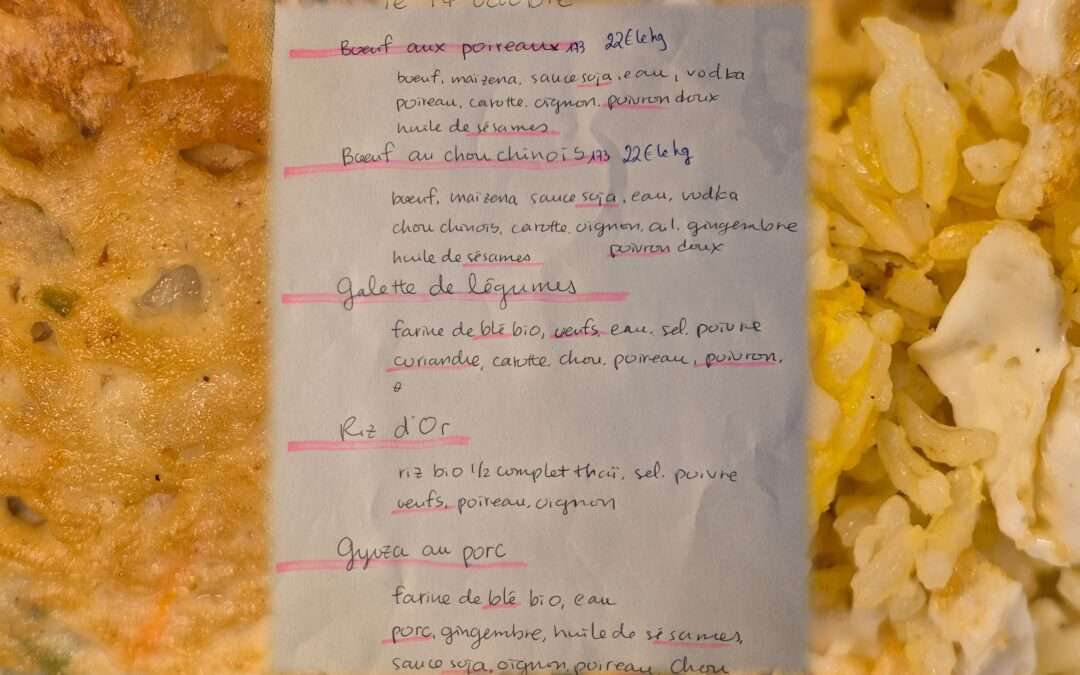 le 17 octobre
Bœuf aux poireaux 173 22€ le kg
bœuf, maizena, sauce soja, eau, vodka
poireau, carotte, oignon, poivron doux
huile de sésames
Bœuf au chou chinois 173 22€ le kg
bœuf, maizena sauce soja, eau, vodka
chou chinois, carotte, oignon, ail, gingembre
huile de sésames poivron doux
Galette de légumes
farine de blé bio, œufs, eau, sel, poivre
coriandre, carotte, chou, poireau, poivron,
Riz d'Or
riz bio 1/2 complet thaï, sel, poivre
œufs, poireau, oignon
Gyoza au porc
farine de blé bio, eau
porc, gingembre, huile de sésames,
sauce soja, oignon, poireau, chou